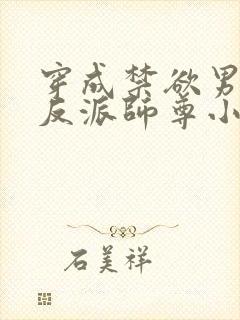 穿成禁欲男
反派師尊小
石美祥